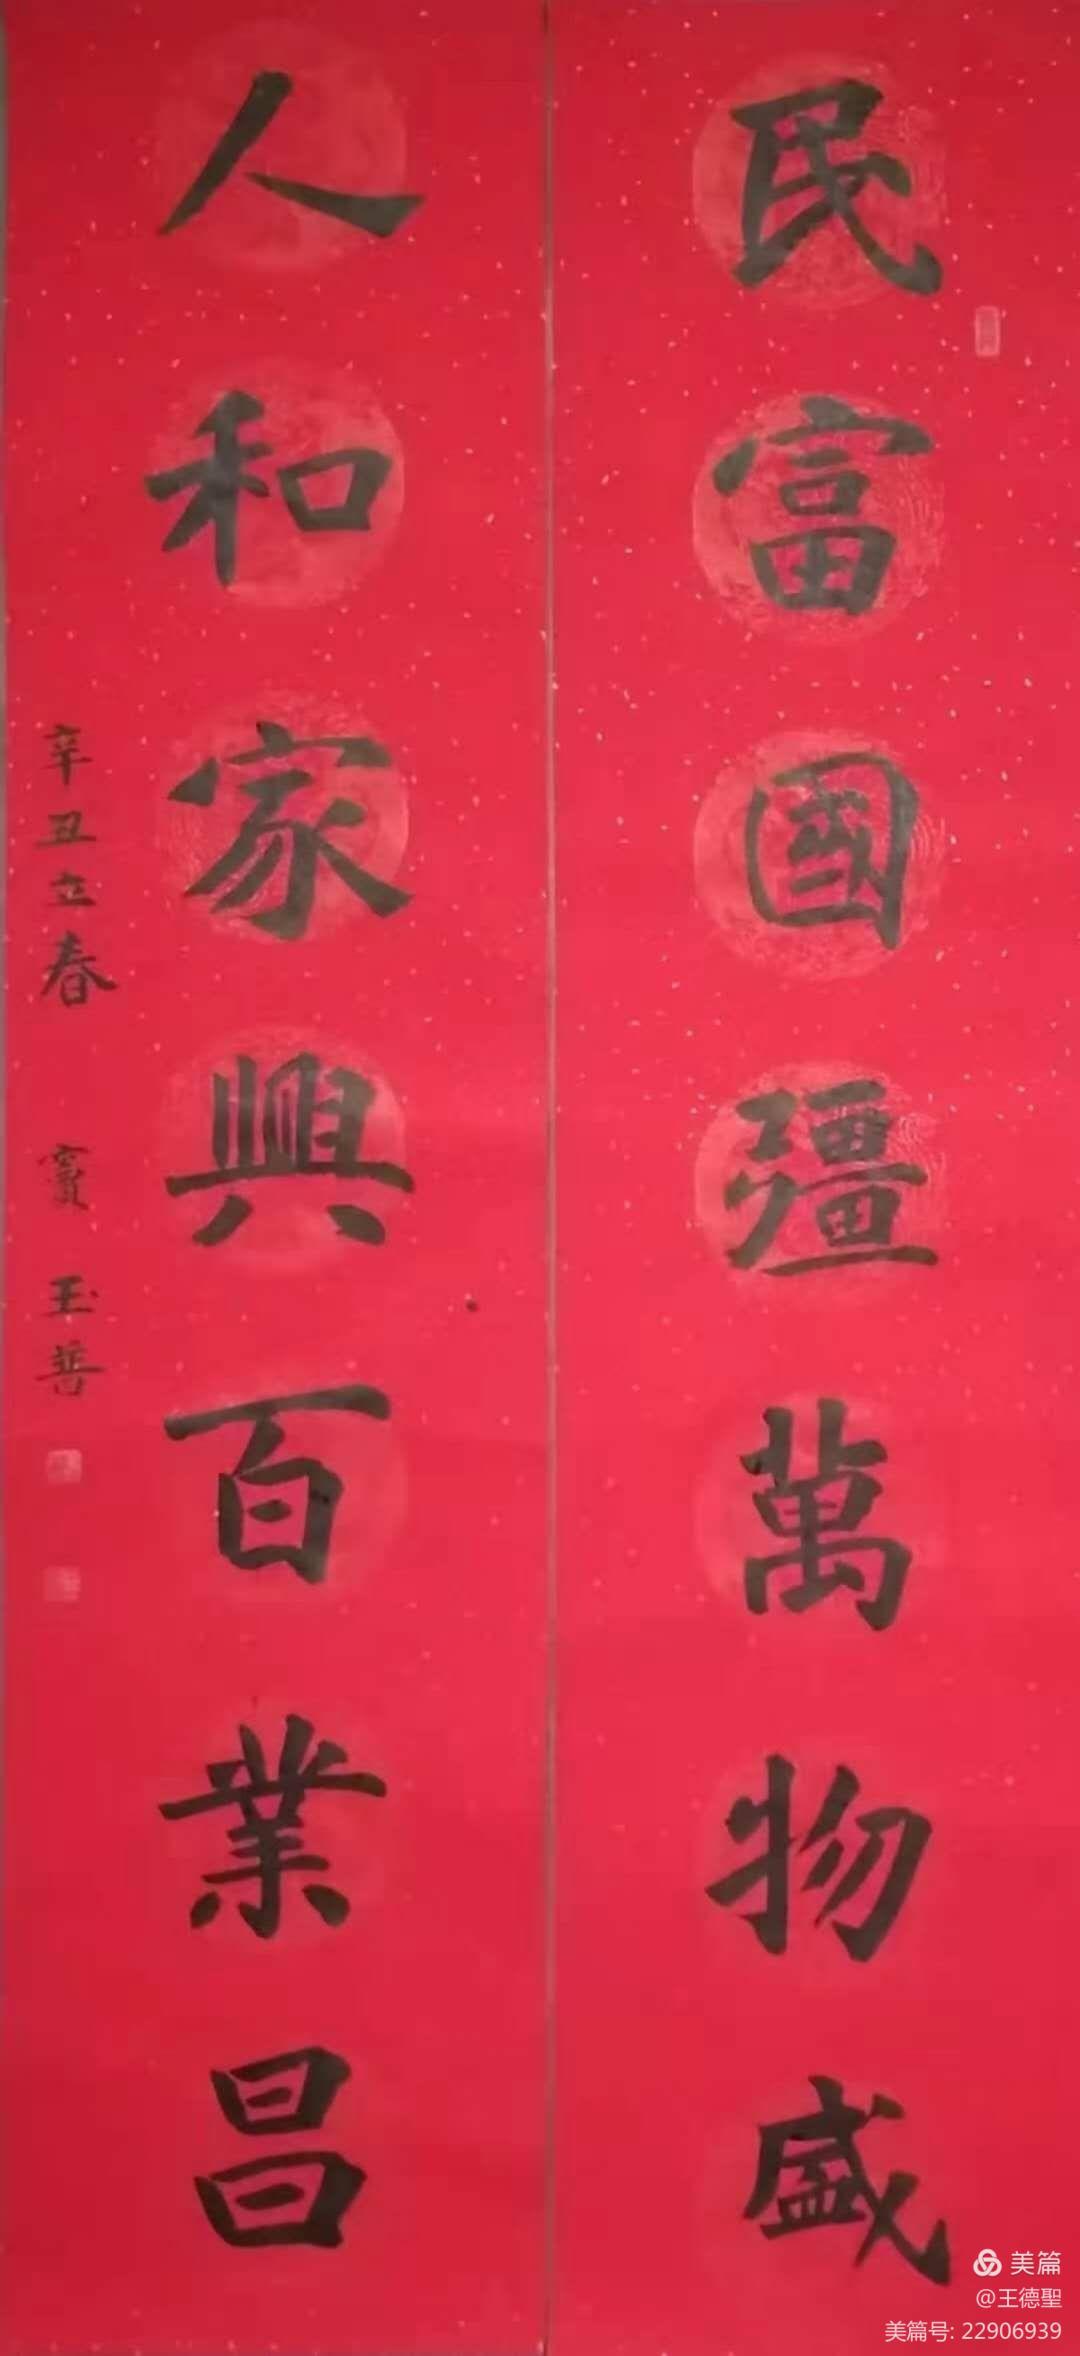 民富國疆萬物盛
人和家興百業昌
辛丑立春 竇玉善
美篇
@王德聖
美篇号: 22906939